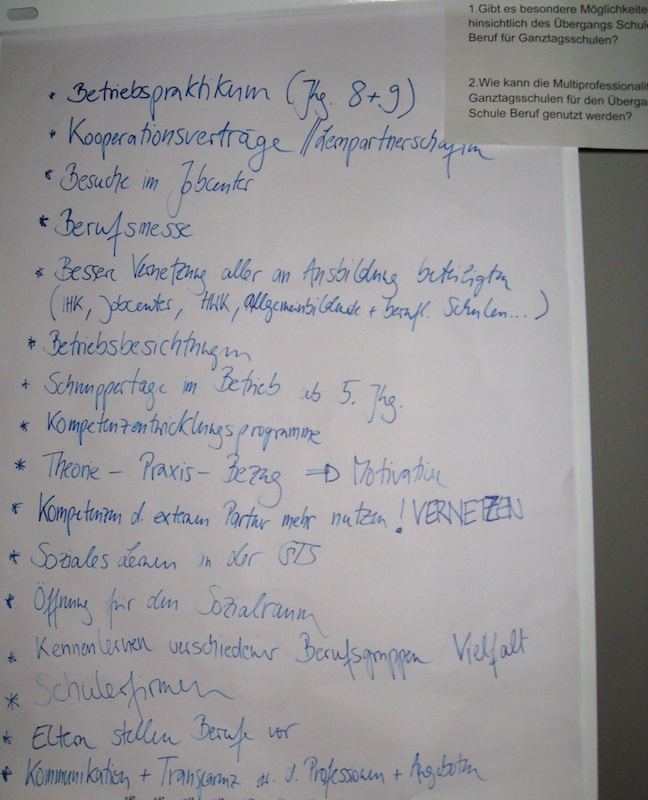 1.Gibt es besondere Möglichkeite
hinsichtlich des Übergangs Schule
Beruf für Ganztagsschulen?
2.Wie kann die Multiprofessionali
Ganztagsschulen für den Überga
Schule Beruf genutzt werden?
* Betriebspraktikum (Jhg. 8+9)
* Kooperationsverträge //Lernpartnerschaften
* Besuche im Jobcenter
* Berufsmesse
* Bessere Vernetzung aller an Ausbildung beteiligten
(IHK, Jobcenter, HWK, Allgemeinbildende + berufl. Schulen...)
* Betriebsbesichtungen
+ Schnuppertage im Betrieb ab 5. Jhg.
* Kompetenzentwicklungsprogramme
* Theorie - Praxis - Bezug ⇒ Motivation
* Kompetenzen d. externen Partner mehr nutzen! VERNETZEN
* Soziales Lernen an der GTS
* Öffnung für den Sozialraum
* Kennenlernen verschiedener Berufsgruppen/Vielfalt
* Schülerfirmen
* Eltern stellen Berufe vor
* Kommunikation + Transparenz d. Professionen + Angeboten